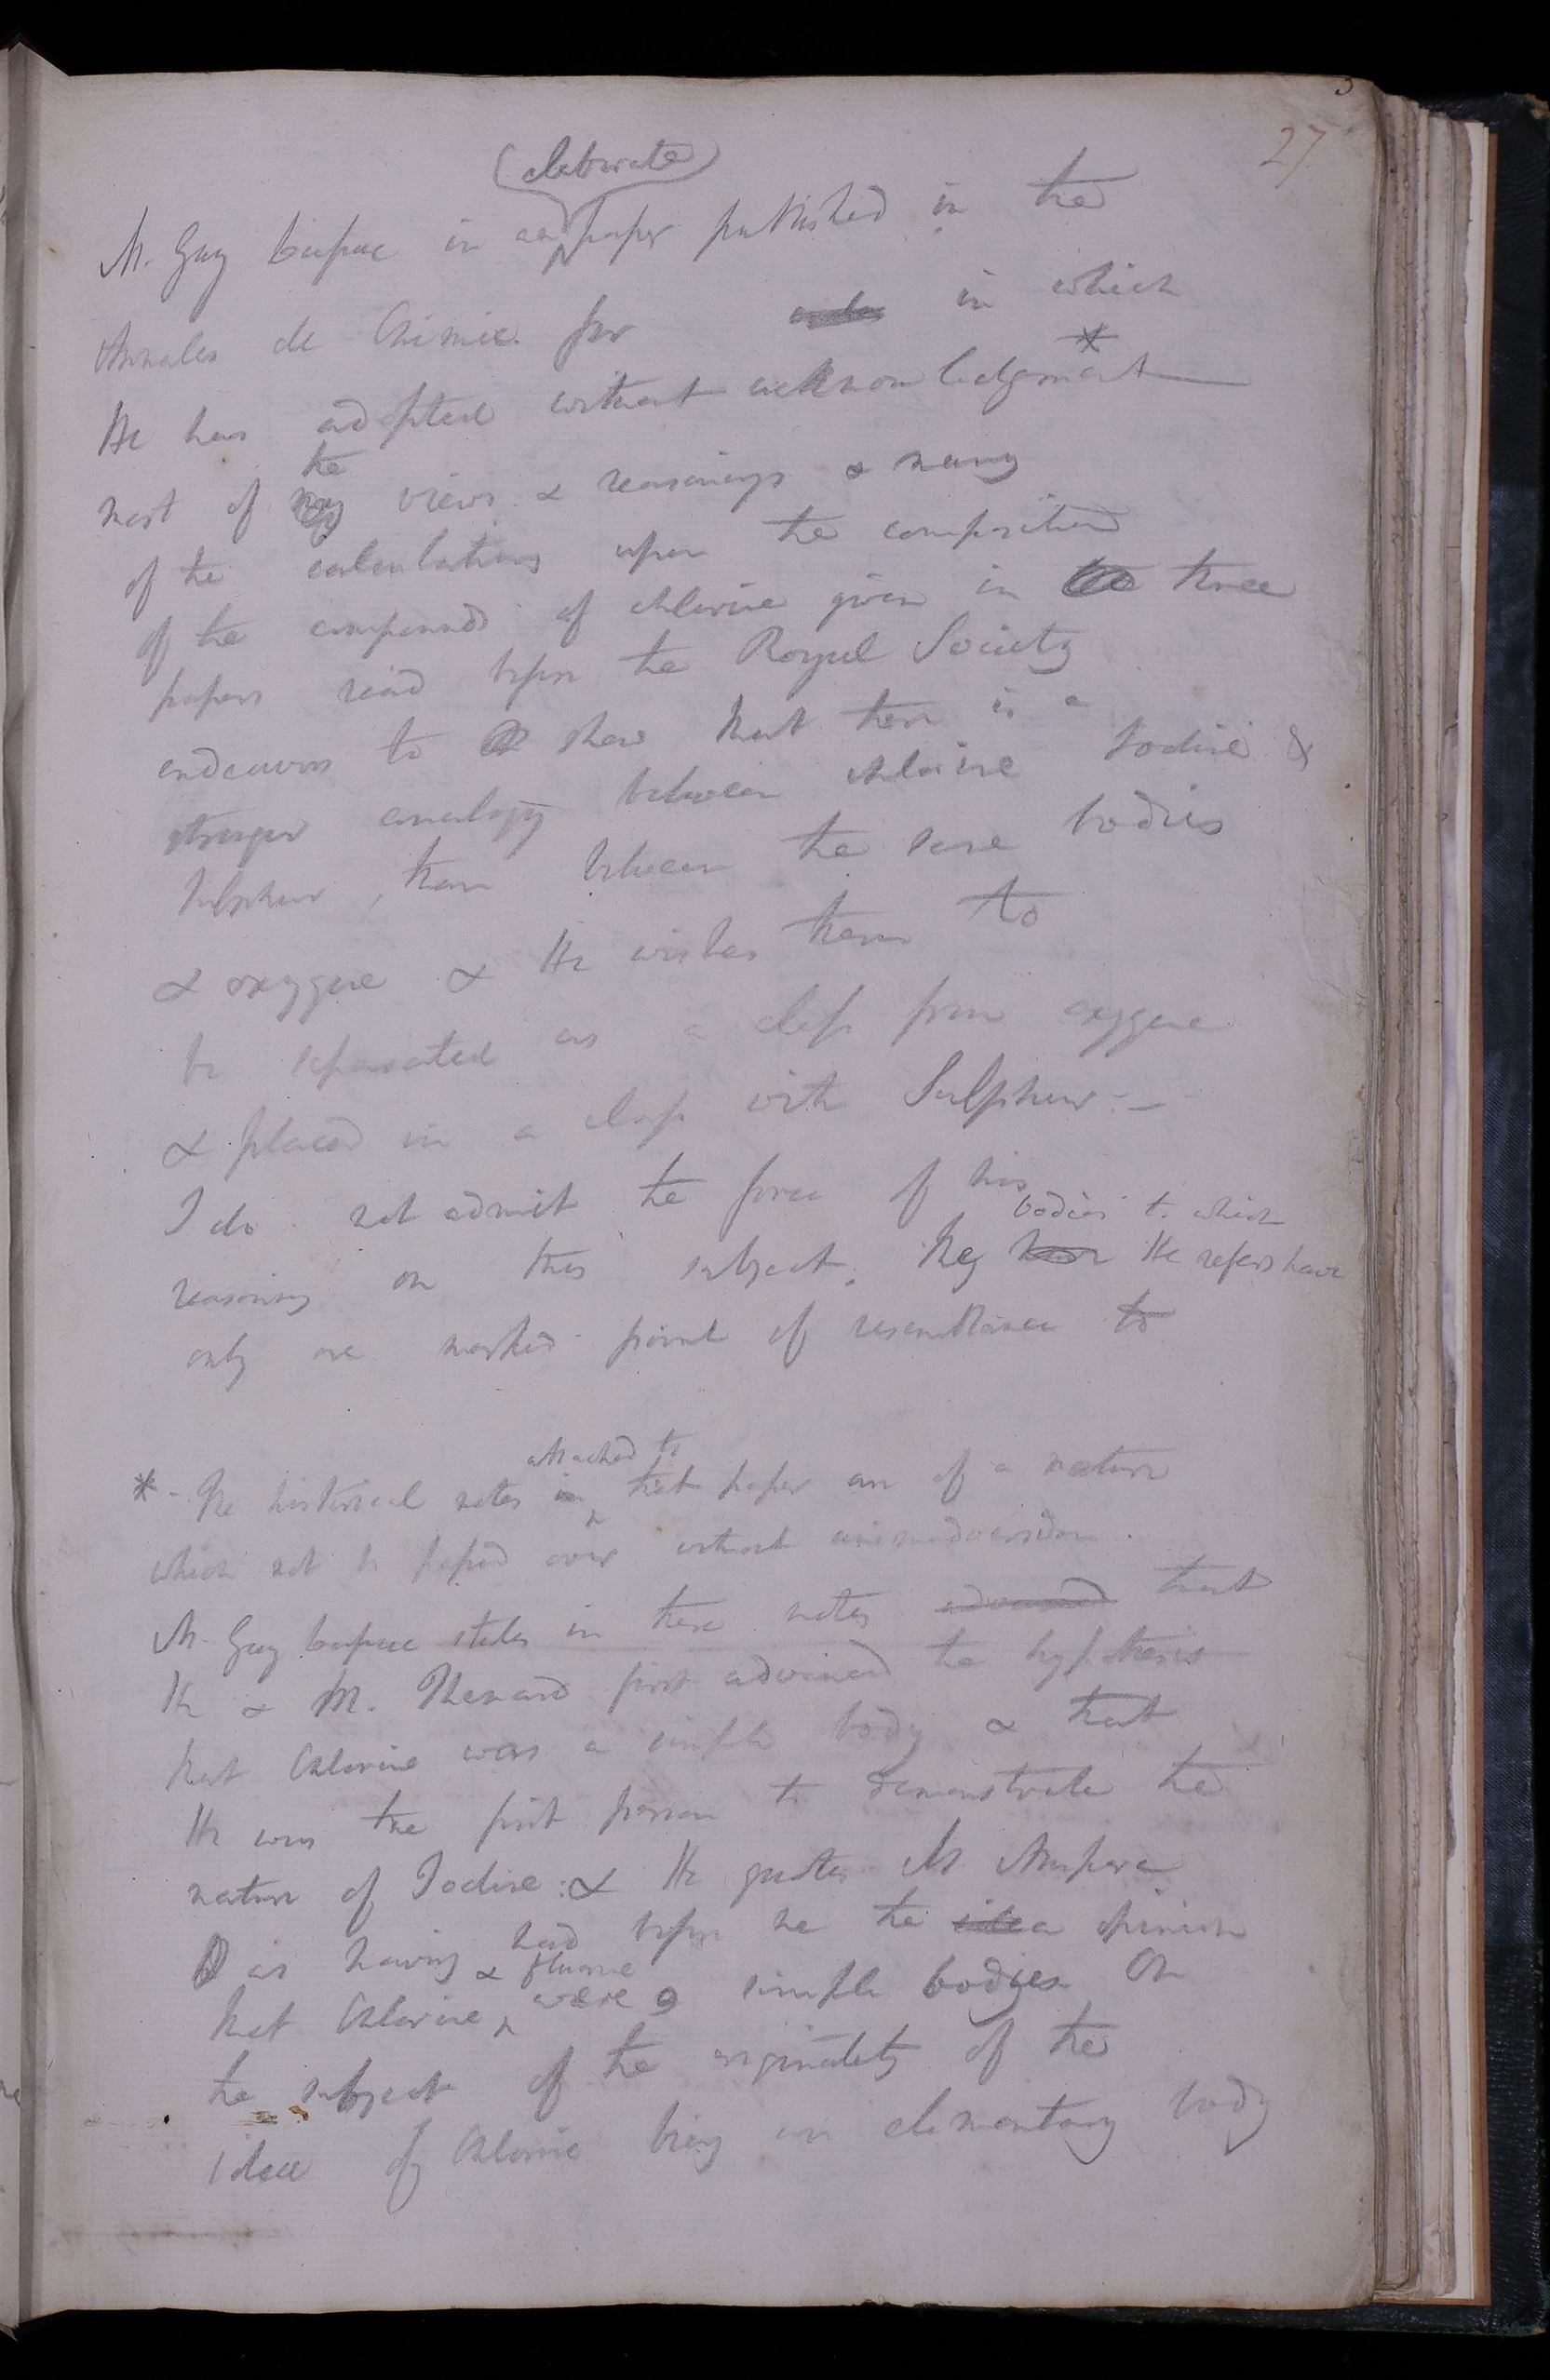 27
(elaborate)
M. Gay Lussac in a paper published in the
Annales de Chimie for in which
He has adopted without acknowledgment *
the
most of my views & reasonings & many
of the calculations upon the composition
of the compounds of chlorine given in the three
papers read before the Royal Society
endeavours to shew that there is a
stronger analogy between chlorine Iodine &
Sulphur, than between the same bodies
& oxygene & He wishes them to
be separated as a class from oxygene
& placed in a class with Sulphur. -
I do not admit the force of his
bodies to which
reasoning on this subject. They have He refers have
only one marked point of resemblance to
attached to
* - The historical notes in that paper are of a nature
which not be passed over without animadversion.
M. Gay Lussac states in these notes advanced that
He & M. Thenard first advanced the hypothesis
that Chlorine was a simple body & that
He was the first person to demonstrate the
nature of Iodine: & He quotes M Ampere
as having had before me the idea opinion
& fluorine
that Chlorine were simple bodies On
the subject of the originality of the
idea of Chlorine being an elementary body